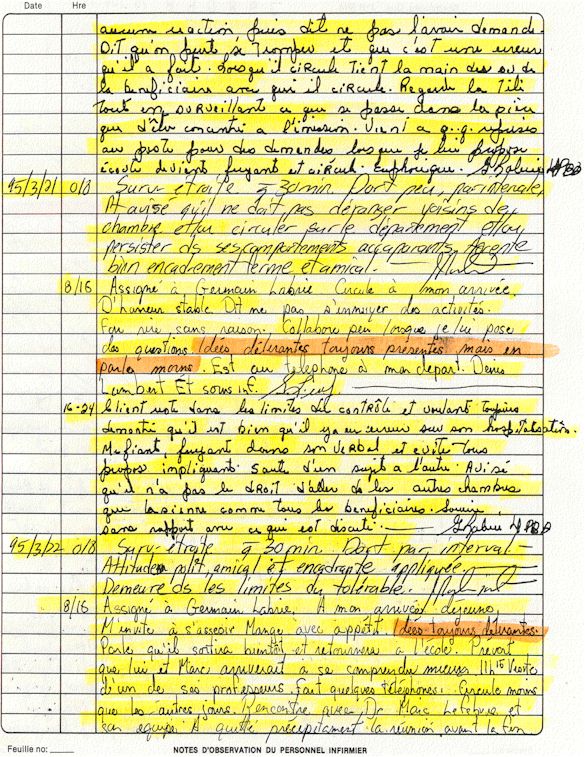 Date Hre
aucune réaction puis dit ne pas l'avoir demandé.
Dit qu'on peut se tromper et que c'est une erreur
qu'il a fait. Lorsqu'il circule tient la main des ou de
la bénéficiaire avec qui il circule. Regarde la Télé
tout en surveillant ce que se passe dans la pièce
que d'être concentré à l'émission. Vient à q.q. reprises
au poste pour des demandes lorsque je lui propose
écoute devient fuyant et circule. Euphorique.
95/3/21 0/8 Surv. étroite q 30 min. Dort peu, par intervale,
At avisé qu'il ne doit pas déranger voisins de
chambre et/ou circuler sur le département et/ou
persister ds ses comportements accaparants. Accepte
bien encadrement ferme et amical.
8/16 Assigné à Germain Labrie Circule à mon arrivée
D'humeur stable Dit ne pas s'ennuyer des activités.
Fou rire sans raison. Collabore peu lorsque je lui pose
des questions Idées délirantes toujours présentes mais en
parle moins. Est au téléphone à mon départ. Denis
Lambert Et sous inf.
16-24 Client reste dans les limites du contrôle et voulant toujours
démontré qu'il est bien qu'il y a eu erreur sur son hospitalisation.
Méfiant, fuyant dans son verbal et évite tous
propos impliquant. Saute d'un sujet à l'autre. Avisé
qu'il n'a pas le droit d'aller ds les autres chambres
que la sienne comme tous les bénéficiaires. Sourire
sans rapport avec ce qui est discuté.
95/3/22 0/8 Surv. étroite q 30 min. Dort par interval.
Attitude polit, amical et encadrante appliquée.
Demeure ds les limites du tolérable.
8/16 Assigné à Germain Labrie. A mon arrivée, déjeune,
M'invite à s'asseoir Mange avec appétit. Idées toujours délirantes.
Parle qu'il sortira bientôt et retournera à l'école. Prévoit
que lui et Marc arriverait a se comprendre mieux 11h15 Visite
d'un de ses professeurs. Fait quelques téléphones. Circule moins
que les autres jours. Rencontre avec Dr Marc Lefebvre et
son équipe. A quitté précipitament la réunion avant la fin
Feuille no:
NOTES D'OBSERVATION DU PERSONNEL INFIRMIER